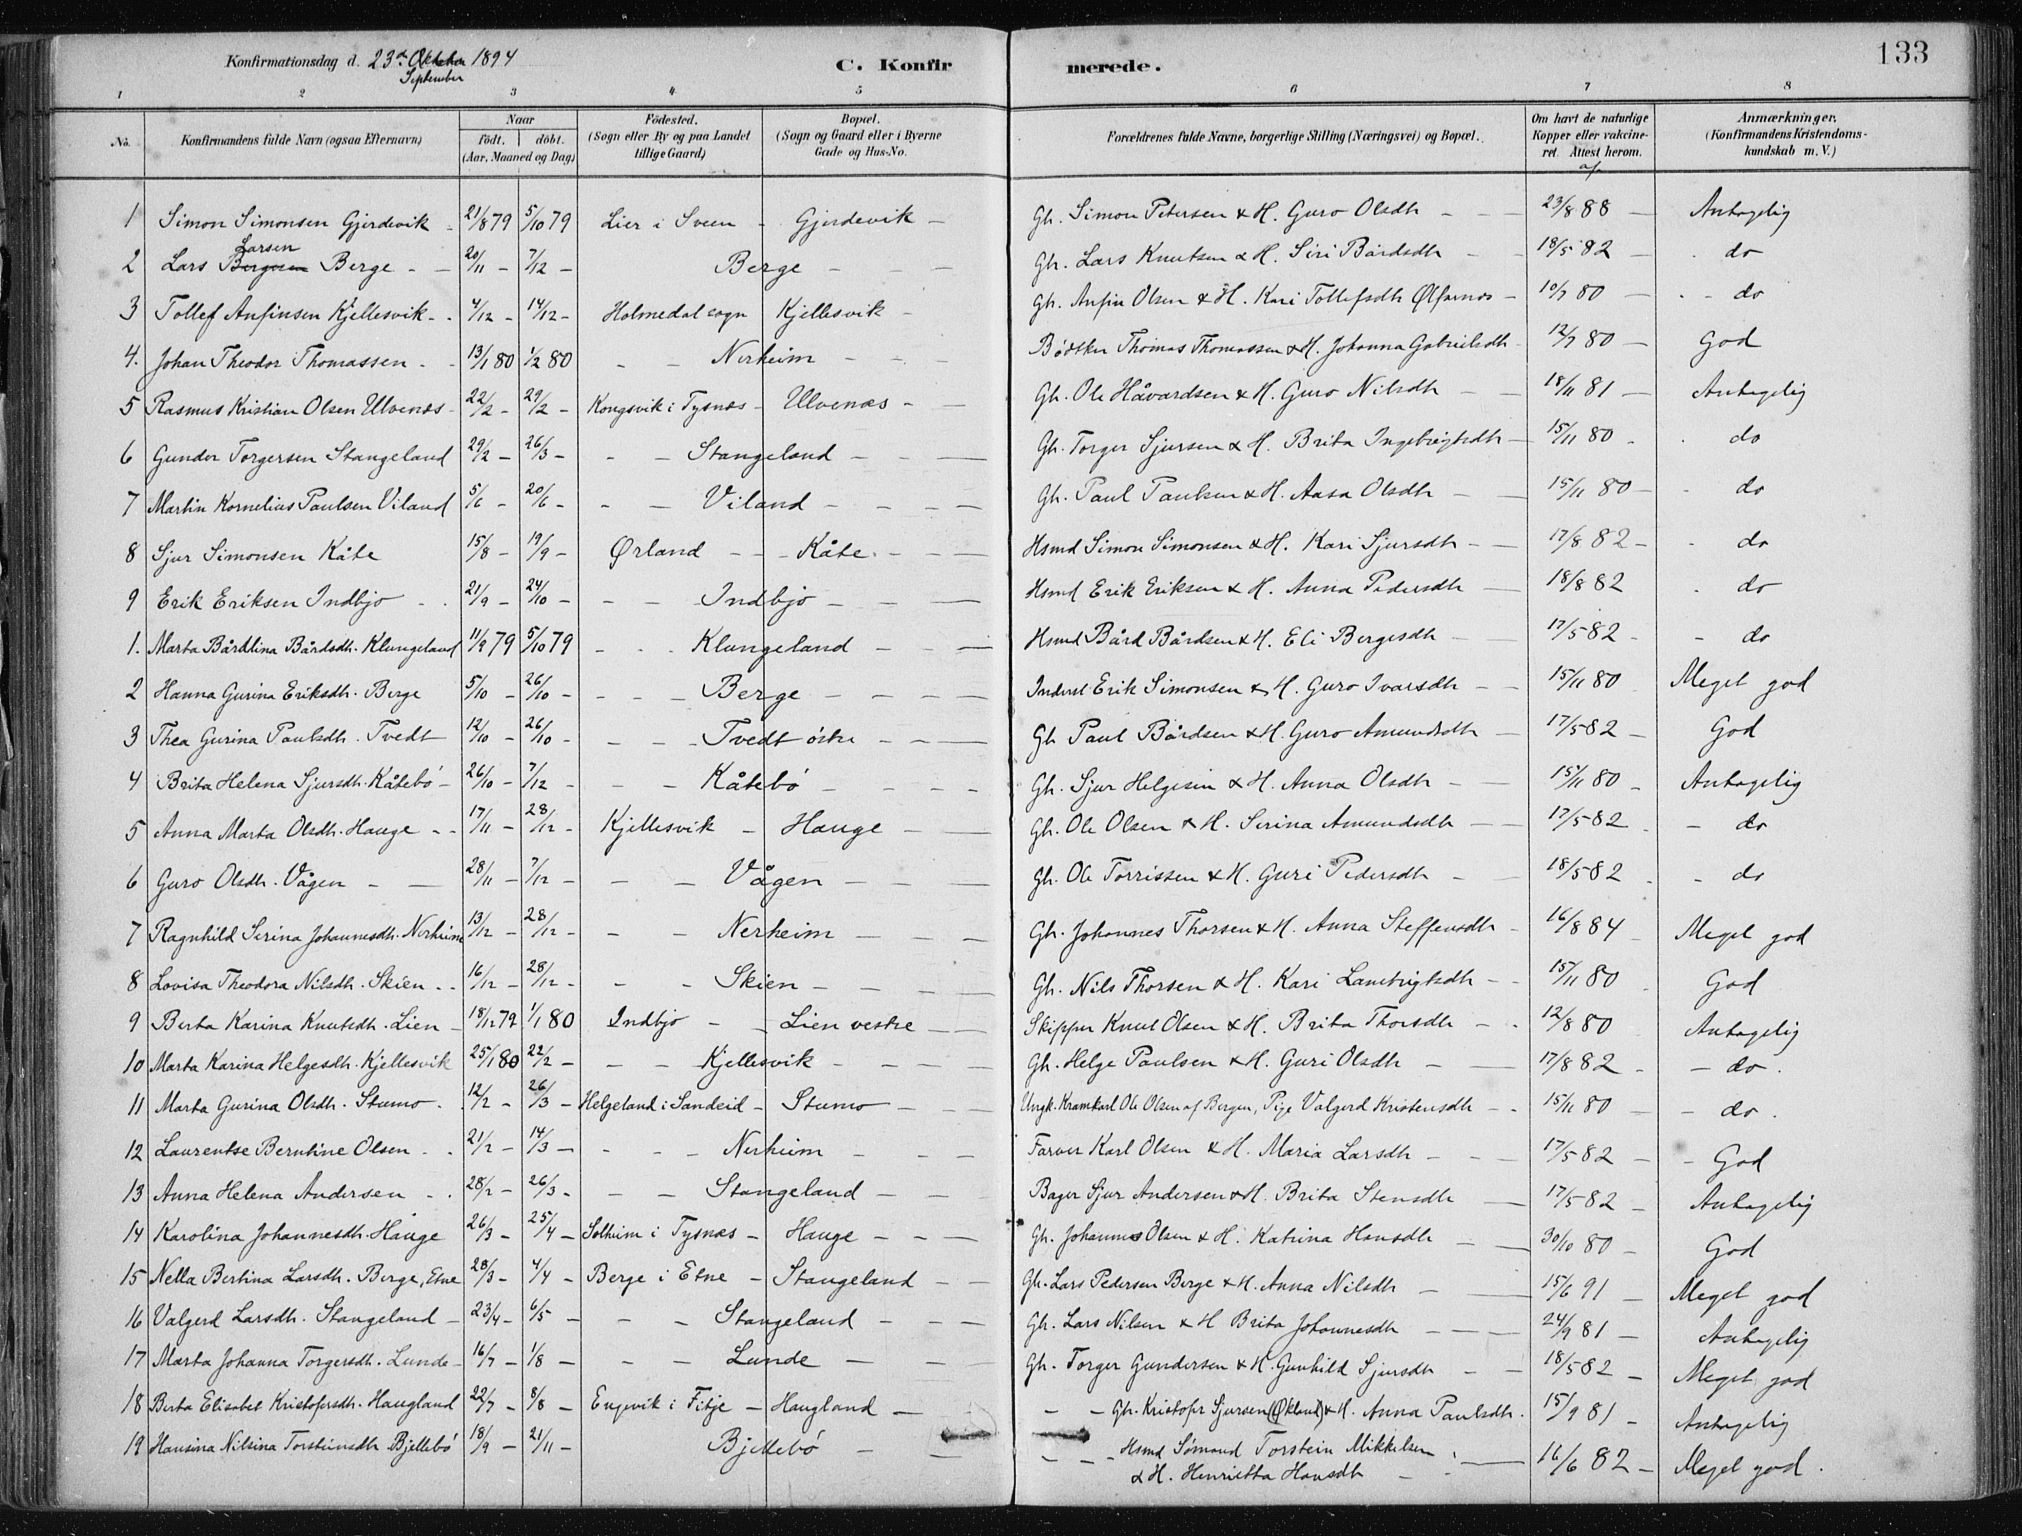 133
Konfirmationsdag d. 23de Oktober 1894
September
C. Konfirmerede.
1 2 3 4 5 6 7 8
No. Konfirmandens fulde Navn (ogsaa Efternavn) Naar födt. döbt. (Aar, Maaned og Dag) Födested. (Sogn eller By og paa Landet tillige Gaard) Bopæl. (Sogn og Gaard eller i Byerne Gade og Hus-No. Forældrenes fulde Navne, borgerlige Stilling (Næringsvei) og Bopæl. Om havt de naturlige Kopper eller vakcineret. Attest herom. af Anmærkninger. (Konfirmandens Kristendomskundskab m. V.)
1 Simon Simonsen Gjerdevik 21/8 79 5/10 79 Lier i Sveen - Gjerdevik - Gb. Simon Petersen & H. Guro Olsdh - 23/8 88 - Antagelig
2 Lars Bergesen Larsen Berge - 20/11 - 7/12 - Berge - Gb. Lars Knutsen & H. Siri Bårdsdh - 18/5 82 - do
3 Tollef Anfinsen Kjellesvik - 4/12 - 14/12 - Holmedal sogn Kjellesvik - Gb. Anfin Olsen & H. Kari Tollefsdh Ølfarnes - 10/7 80 - do
4. Johan Theodor Thomassen - 13/1 80 1/2 80 - - Nerheim - Bødker Thomas Thomassen & H. Johanna Gabrielsdh - 12/7 80 - God
5 Rasmus Kristian Olsen Ulvenæs - 22/2 - 29/2 - Kongsvik i Tysnæs - Ulvenæs - Gb. Ole Håvardsen & H. Guro Nilsdh - 18/11 81 - Antagelig
6 Gunder Torgersen Stangeland 29/2 - 26/3 - - - Stangeland - Gb. Torger Sjursen & H. Brita Ingebrigtsdh - 15/11 80 - do
7 Martin Kornelius Paulsen Viland 5/6 - 20/6 - - - Viland - Gb. Paul Paulsen & H. Aasa Olsdh - 15/11 80 - do
8 Sjur Simonsen Kåte 15/8 - 19/9 - Ørland - - Kåte - Hsmd Simon Simonsen & H. Kari Sjursdh - 17/8 82 - do
9 Erik Eriksen Indbjo - 21/9 - 24/10 - - - Indbjo - Hsmd Erik Eriksen & H. Anna Pedersdh - 18/8 82 - do
1. Marta Bårdlina Bårdsdh. Klungeland 11/9 79 5/10 79 - - Klungeland - Hsmd Bård Bårdsen & H. Eli Bergesdh - 17/5 82 - do
2 Hanna Gurina Eriksdh. Berge 5/10 - 26/10 - - - Berge - Inderst Erik Simonsen & H. Guro Ivarsdh - 15/11 80 Meget god
3 Thea Gurina Paulsdh. Tvedt 12/10 - 26/10 - - - Tvedt östre - Gb Paul Bårdsen & H. Guro Amundsdh - 17/5 82 - God
4 Brita Helena Sjursdh. Kåtebö - 26/10 - 7/12 - - - Kåtebö - Gb. Sjur Helgesen & H. Anna Olsdh - 15/11 80 - Antagelig
5 Anna Marta Olsdh. Hauge - 17/11 - 28/12 - Kjellesvik - Hauge - Gb. Ole Olsen & H. Serina Amundsdh - 17/5 82 - do
6 Guro Olsdh. Vågen - 28/11 - 7/12 - - - Vågen - Gb. Ole Torrissen & H. Guri Pedersdh - 18/5 82 - do
7 Ragnhild Serina Johannesdh. Nerheim 13/12 - 28/12 - - - Nerheim - Gb. Johannes Thorsen & H. Anna Steffensdh - 16/8 84 - Meget god
8 Lovisa Theodora Nilsdh. Skien - 16/12 - 28/12 - - - Skien - Gb. Nils Thorsen & H. Kari Lambrigtsdh - 15/11 80 God
9 Berta Karina Knutsdh. Lien - 18/12 79 1/1 80 Indbjo - - Lien vestre - Skipper Knut Olsen & H. Brita Thorsdh - 12/8 80 Antagelig
10 Marta Karina Helgesdh. Kjellesvik 25/1 80 22/2 - - - Kjellesvik - Gb. Helge Paulsen & H. Guri Olsdh - 17/8 82 - do.
11 Marta Gurina Olsdh. Stumo - 12/2 - 26/3 - Helgeland i Sandeid - Stumo - Ungk. Kramkarl Ole Olsen af Bergen, Pige Valgerd Kristensdh - 15/11 80 - do.
12 Laurentse Berntine Olsen - 21/2 - 14/3 - - - Nerheim - Farver Karl Olsen & H. Maria Larsdh - 17/5 82 - God
13 Anna Helena Andersen - 28/2 - 26/3 - - - Stangeland - Bager Sjur Andersen & H. Brita Stensdh - 17/5 82 - Antagelig
14 Karolina Johannesdh. Hauge 26/3 - 25/4 - Solheim i Tysnæs - Hauge - Gb. Johannes Olsen & H. Katrina Hansdh - 30/10 80 - God
15 Nella Bertina Larsdh. Berge, Etne 28/3 - 4/4 - Berge i Etne - Stangeland - Gb. Lars Pedersen Berge & H. Anna Nilsdh - 15/6 91 - Meget god
16 Valgerd Larsdh. Stangeland - 23/4 - 6/5 - - - Stangeland - Gb. Lars Nilsen & H Brita Johannesdh - 24/9 81 - Antagelig
17 Marta Johanna Torgersdh. Lunde - 16/7 - 1/8 - - - Lunde - Gb. Torger Gundersen & H. Gunhild Sjursdh - 18/5 82 - Meget god
18 Berta Elisabet Kristofersdh. Haugland 22/7 - 8/8 - Engevik i Fitje - Haugland - - - Gb. Kristofer Sjursen (Økland) & H. Anna Paulsdh. 15/9 81 - Antagelig
19 Hansina Nilsina Torsteinsdh Bjellebö 18/9 - 21/11 - Bjellebö - - - Hsmd Sömand Torstein Mikkelsen
& H. Henrietta Hansdh - 16/6 82 - Meget god.